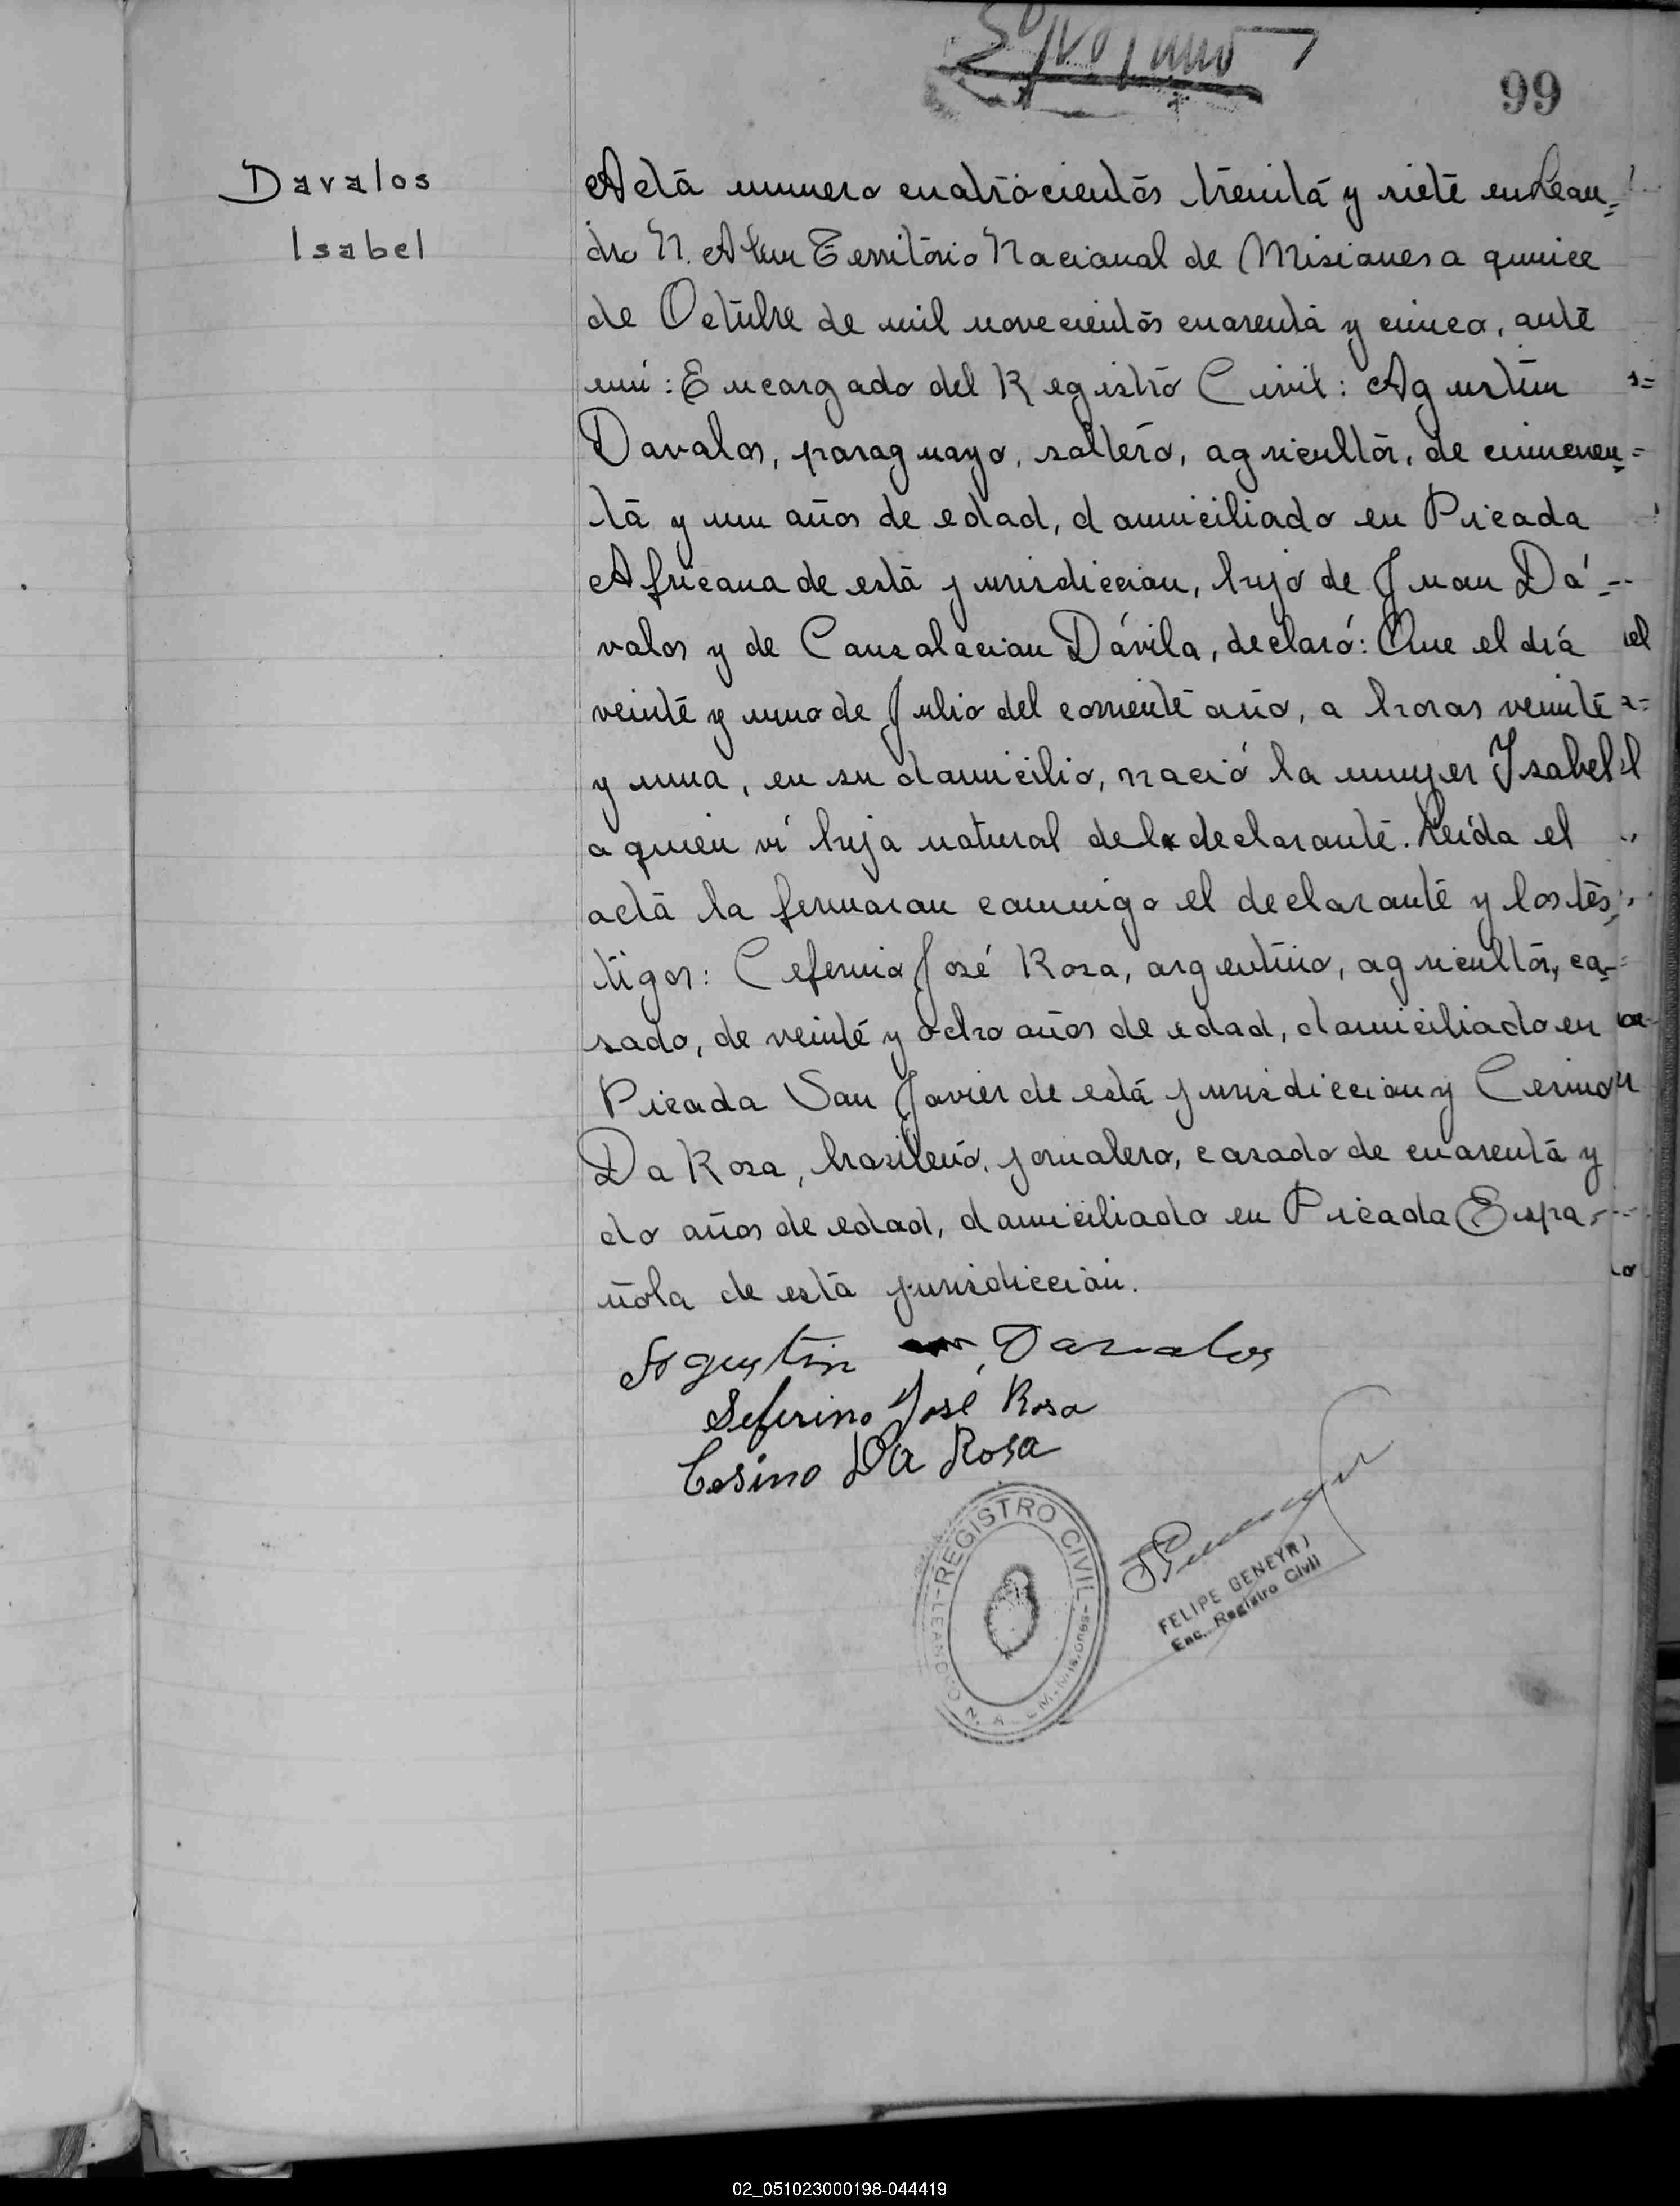 99
Davalos
Isabel
Acta numero cuatrocientos treinta y siete en Lean=
dro N. Alem Territorio Nacional de Misiones a quince
de Octubre de mil novecientos cuarenta y cinco, ante
mi: Encargado del Registro Civil: Agustin
Davalos, paraguayo, soltero, agricultor, de cincuen=
ta y un años de edad, domiciliado en Picada
Africana de esta jurisdiccion, hijo de Juan Dá=
valos y de Consolacion Dávila, declaró: Que el día
veinte y uno de Julio del corriente año, a horas veinte
y una, en su domicilio, nació la mujer Isabel
a quien ví hija natural del declarante. Leída el
acta la firmaran conmigo el declarante y los tes=
tigos: Ceferino José Rosa, argentino, agricultor, ca=
sado, de veinte y ocho años de edad, domiciliado en
Picada San Javier de esta jurisdiccion y Cesino
Da Rosa, brasileño, jornalero, casado de cuarenta y
do años de edad, domiciliado en Picada Espa=
ñola de esta jurisdiccion.
Agustin Davalos
Seferino José Rosa
Cesino Da Rosa
REGISTRO CIVIL - LEANDRO N. A - M. Misiones
FELIPE GENEYRJ
Enc. Registro Civil
02_051023000198-044419